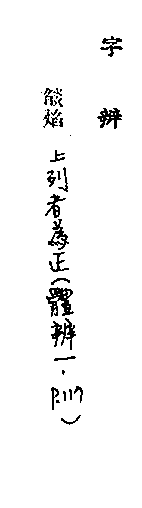 字辨
燄焰 上列者為正(體辨一．P.117)